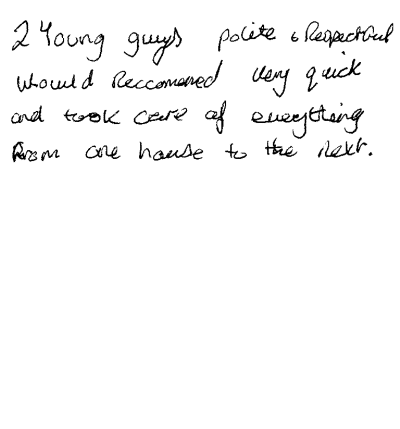 2 Young guys polite & Respectful
would Reccomened very quick
and took care of everything
from one house to the next.